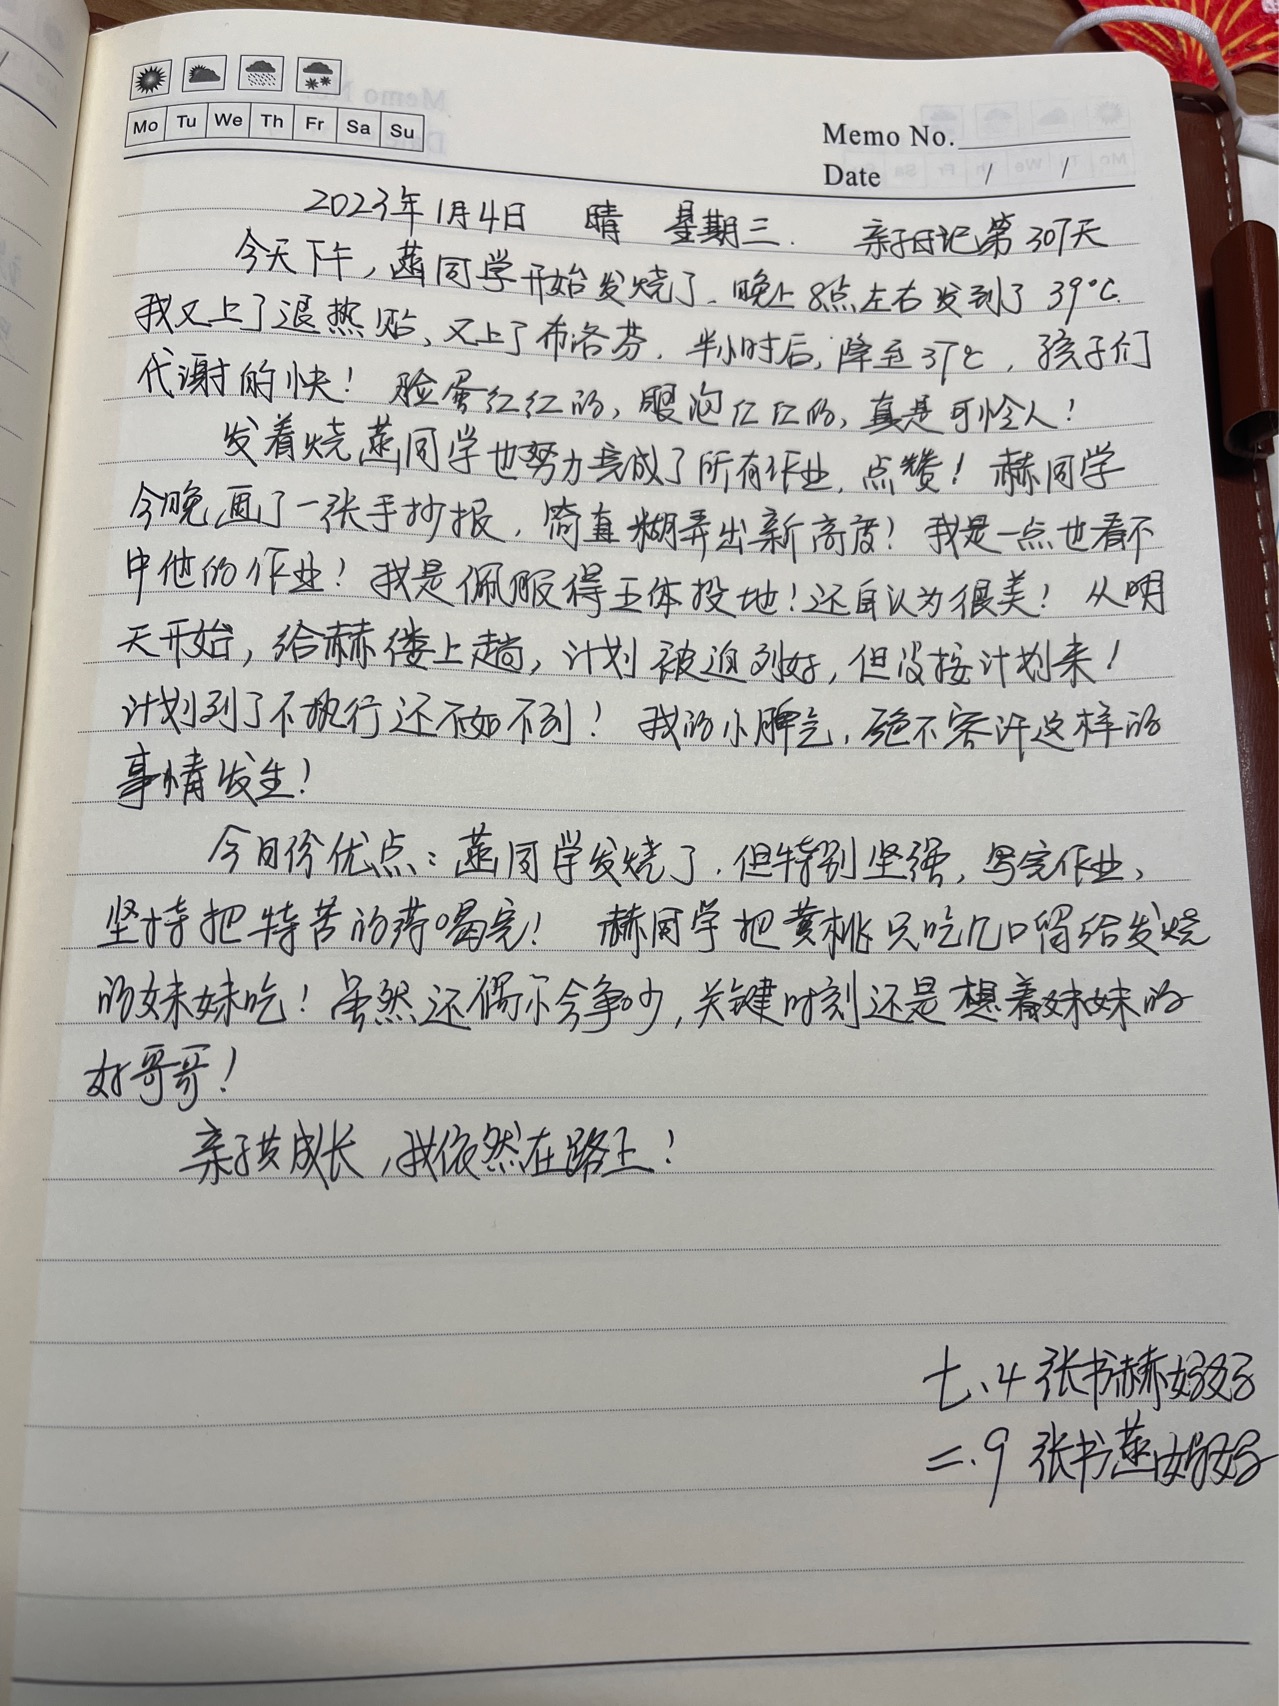 Mo Tu We Th Fr Sa Su
Memo No.
Date / /
2023年1月4日 晴 星期三. 亲子日记第307天
今天下午,蕴同学开始发烧了.晚上8点左右发到了39℃.
我又上了退热贴,又上了布洛芬.半小时后,降至37℃,孩子们
代谢的快!脸蛋红红的,眼泡红红的,真是可怜人!
发着烧蕴同学也努力完成了所有作业,点赞!赫同学
今晚画了一张手抄报,简直糊弄出新高度!我是一点也看不
中他的作业!我是佩服得五体投地!还自认为很美!从明
天开始,给赫偻上趟,计划被迫列好,但没按计划来!
计划列了不执行还不如不列!我的小脾气,绝不容许这样的
事情发生!
今日份优点:蕴同学发烧了.但特别坚强,写完作业,
坚持把特苦的药喝完!赫同学把黄桃只吃几口留给发烧
的妹妹吃!虽然还偶尔会争吵,关键时刻还是想着妹妹的
好哥哥!
亲子共成长,我依然在路上!
七.4 张书赫妈妈
二.9 张书蕴妈妈